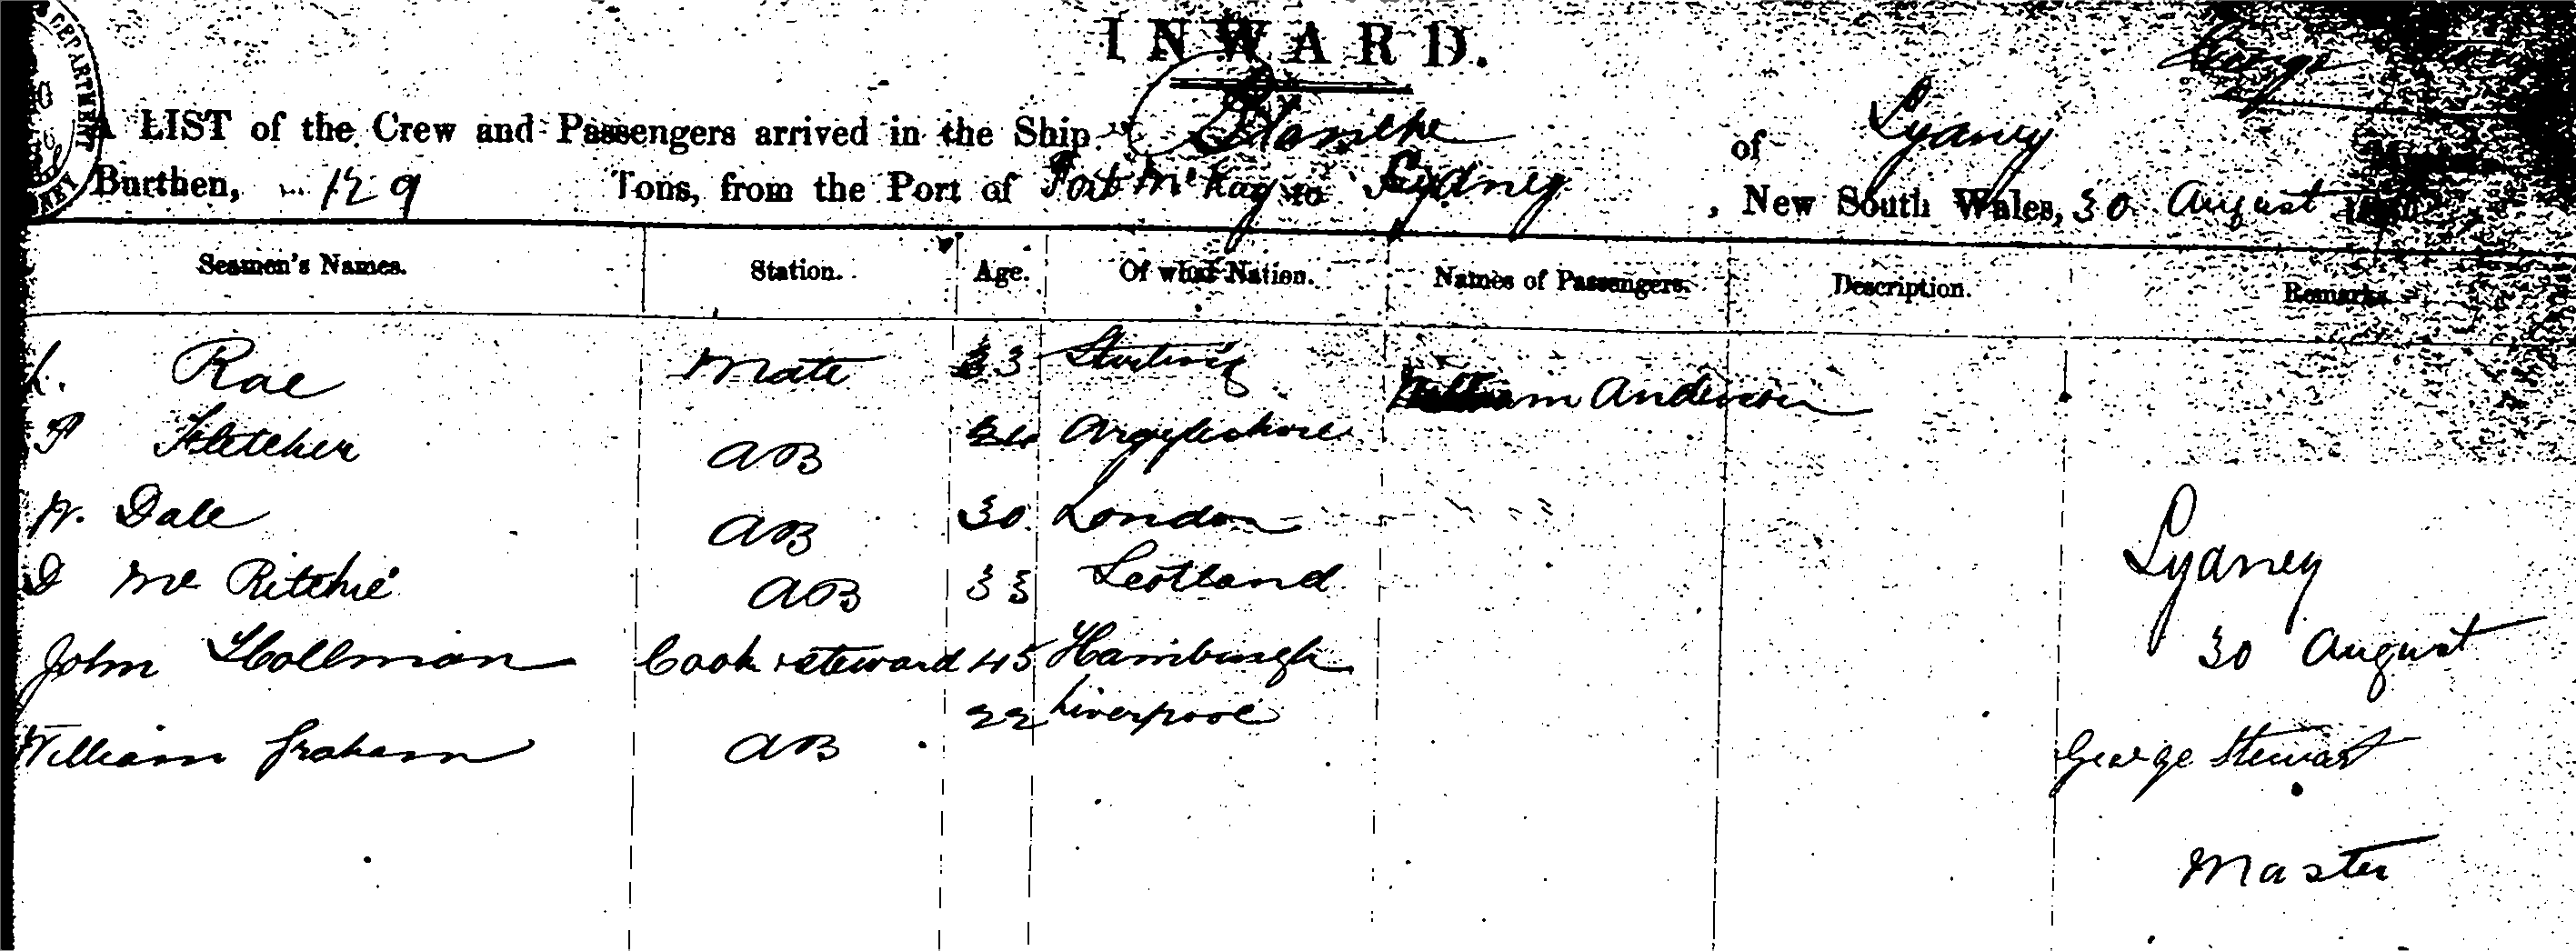 DEPARTMENT
INWARD.
George
A LIST of the Crew and Passengers arrived in the Ship Blanche of Sydney
Burthen, 129 Tons, from the Port of Port McKay to Sydney, New South Wales, 30 August
Seamen's Names. Station. Age. Of what Nation. Names of Passengers. Description. Remarks
Rae Mate 33 Sterling
William Anderson
P Fletcher AB Argyleshire
W. Dale AB 30 London
D Mc Ritchie AB 33 Scotland
Sydney
John Hollman Cook & steward 45 Hamburgh
30 August
William Graham AB 22 Liverpool
George Stewart
Master